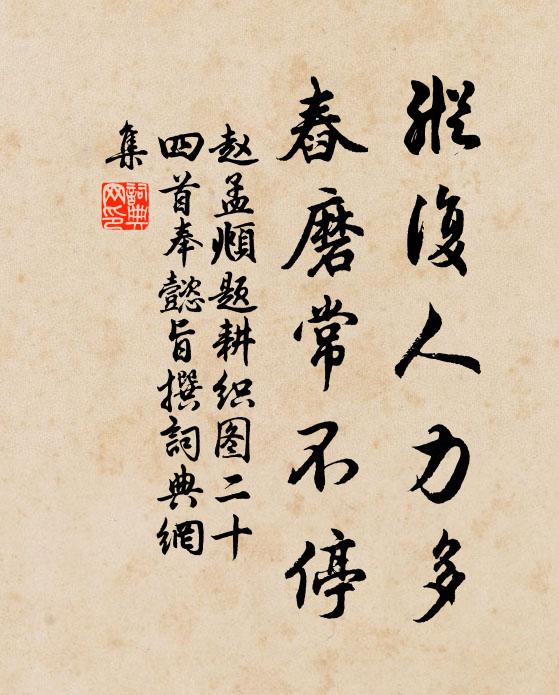 縱復人力多
舂磨常不停
赵孟頫题耕织图二十
四首奉懿旨撰詞典網
集
詞典网印